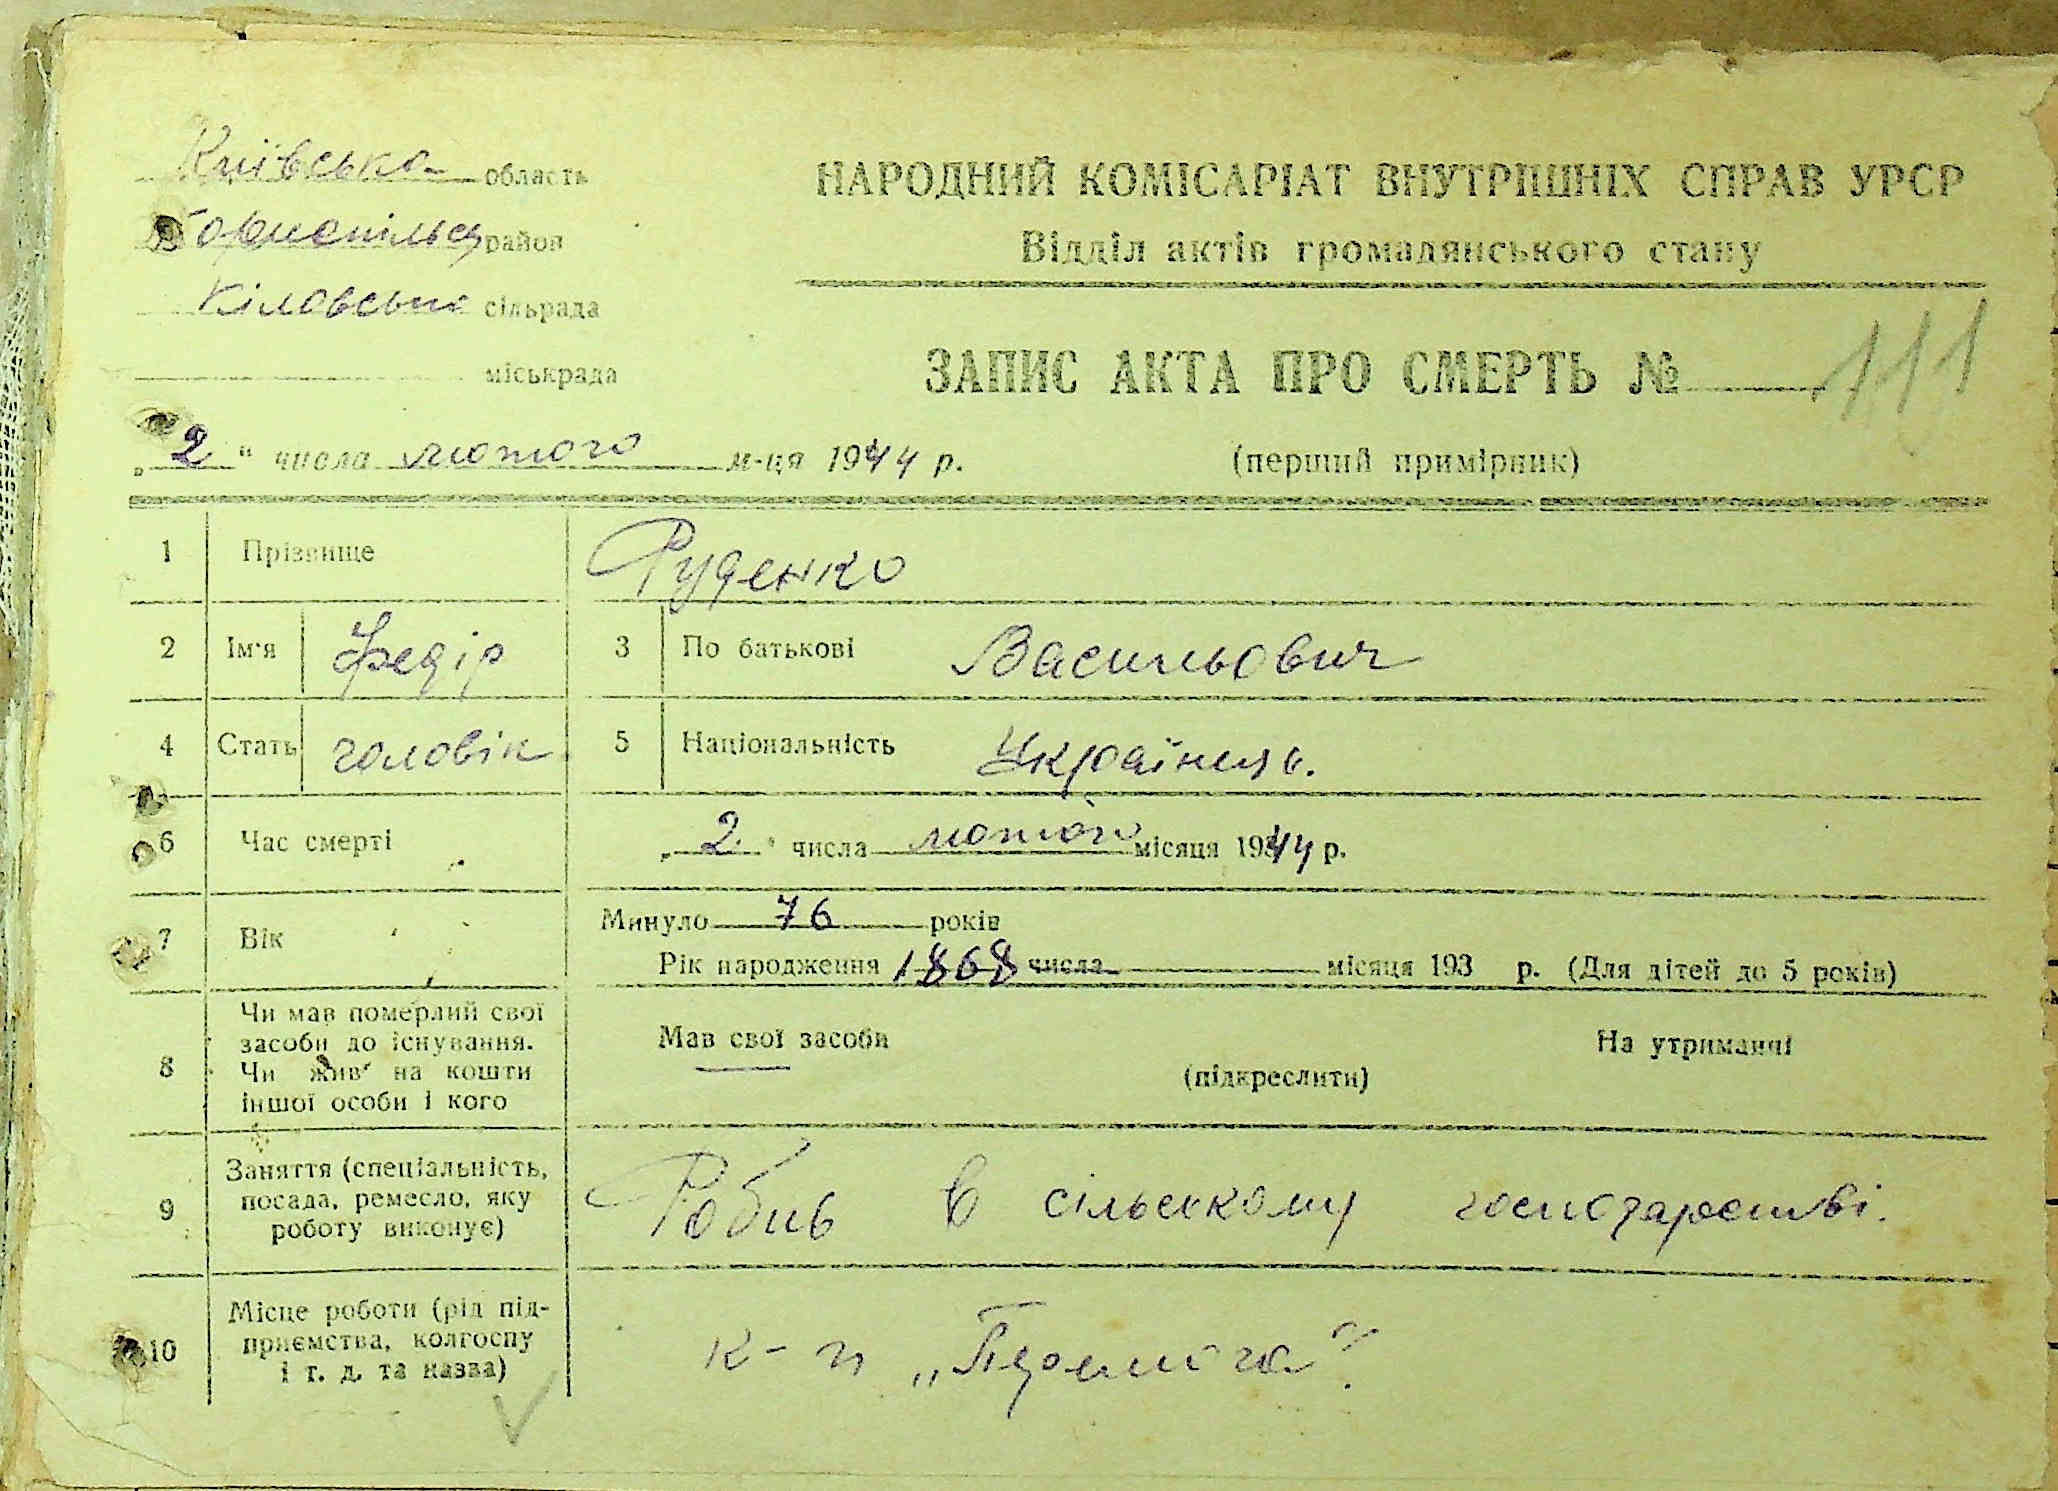 Київська область
НАРОДНИЙ КОМІСАРІАТ ВНУТРІШНІХ СПРАВ УРСР
Бориспільск район
Відділ актів громадянського стану
Кіловська сільрада
міськрада
ЗАПИС АКТА ПРО СМЕРТЬ № 111
„2" числа лютого м-ця 1944 р.
(перший примірник)
1 Прізвище Руденко
2 Ім'я Федір 3 По батькові Васильович
4 Стать чоловік 5 Національність Українець.
6 Час смерті „2" числа лютого місяця 1944 р.
7 Вік Минуло 76 років
Рік народження 1868 числа місяця 193 р. (Для дітей до 5 років)
8 Чи мав померлий свої засоби до існування. Чи жив на кошти іншої особи і кого
Мав свої засоби (підкреслити) На утриманні
9 Заняття (спеціальність, посада, ремесло, яку роботу виконує) Робив в сільському господарстві.
10 Місце роботи (рід підприємства, колгоспу і т. д. та назва) к-п